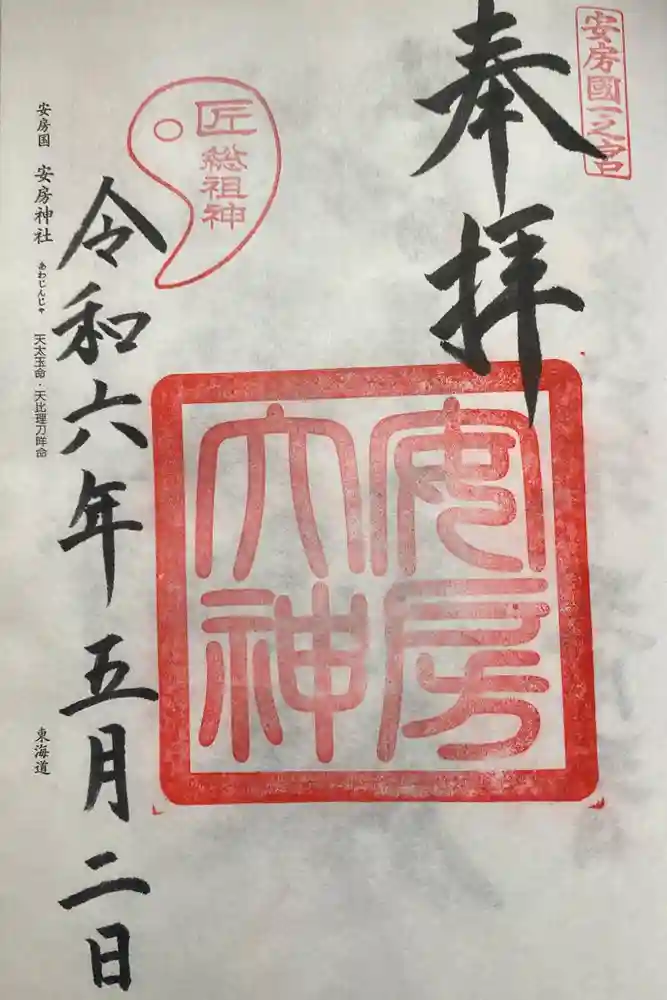 安房國一之宮
奉拝
安房
大神
匠
総祖神
令和六年五月二日
安房国 安房神社 あわじんじゃ 天太玉命・天比理刀咩命 東海道